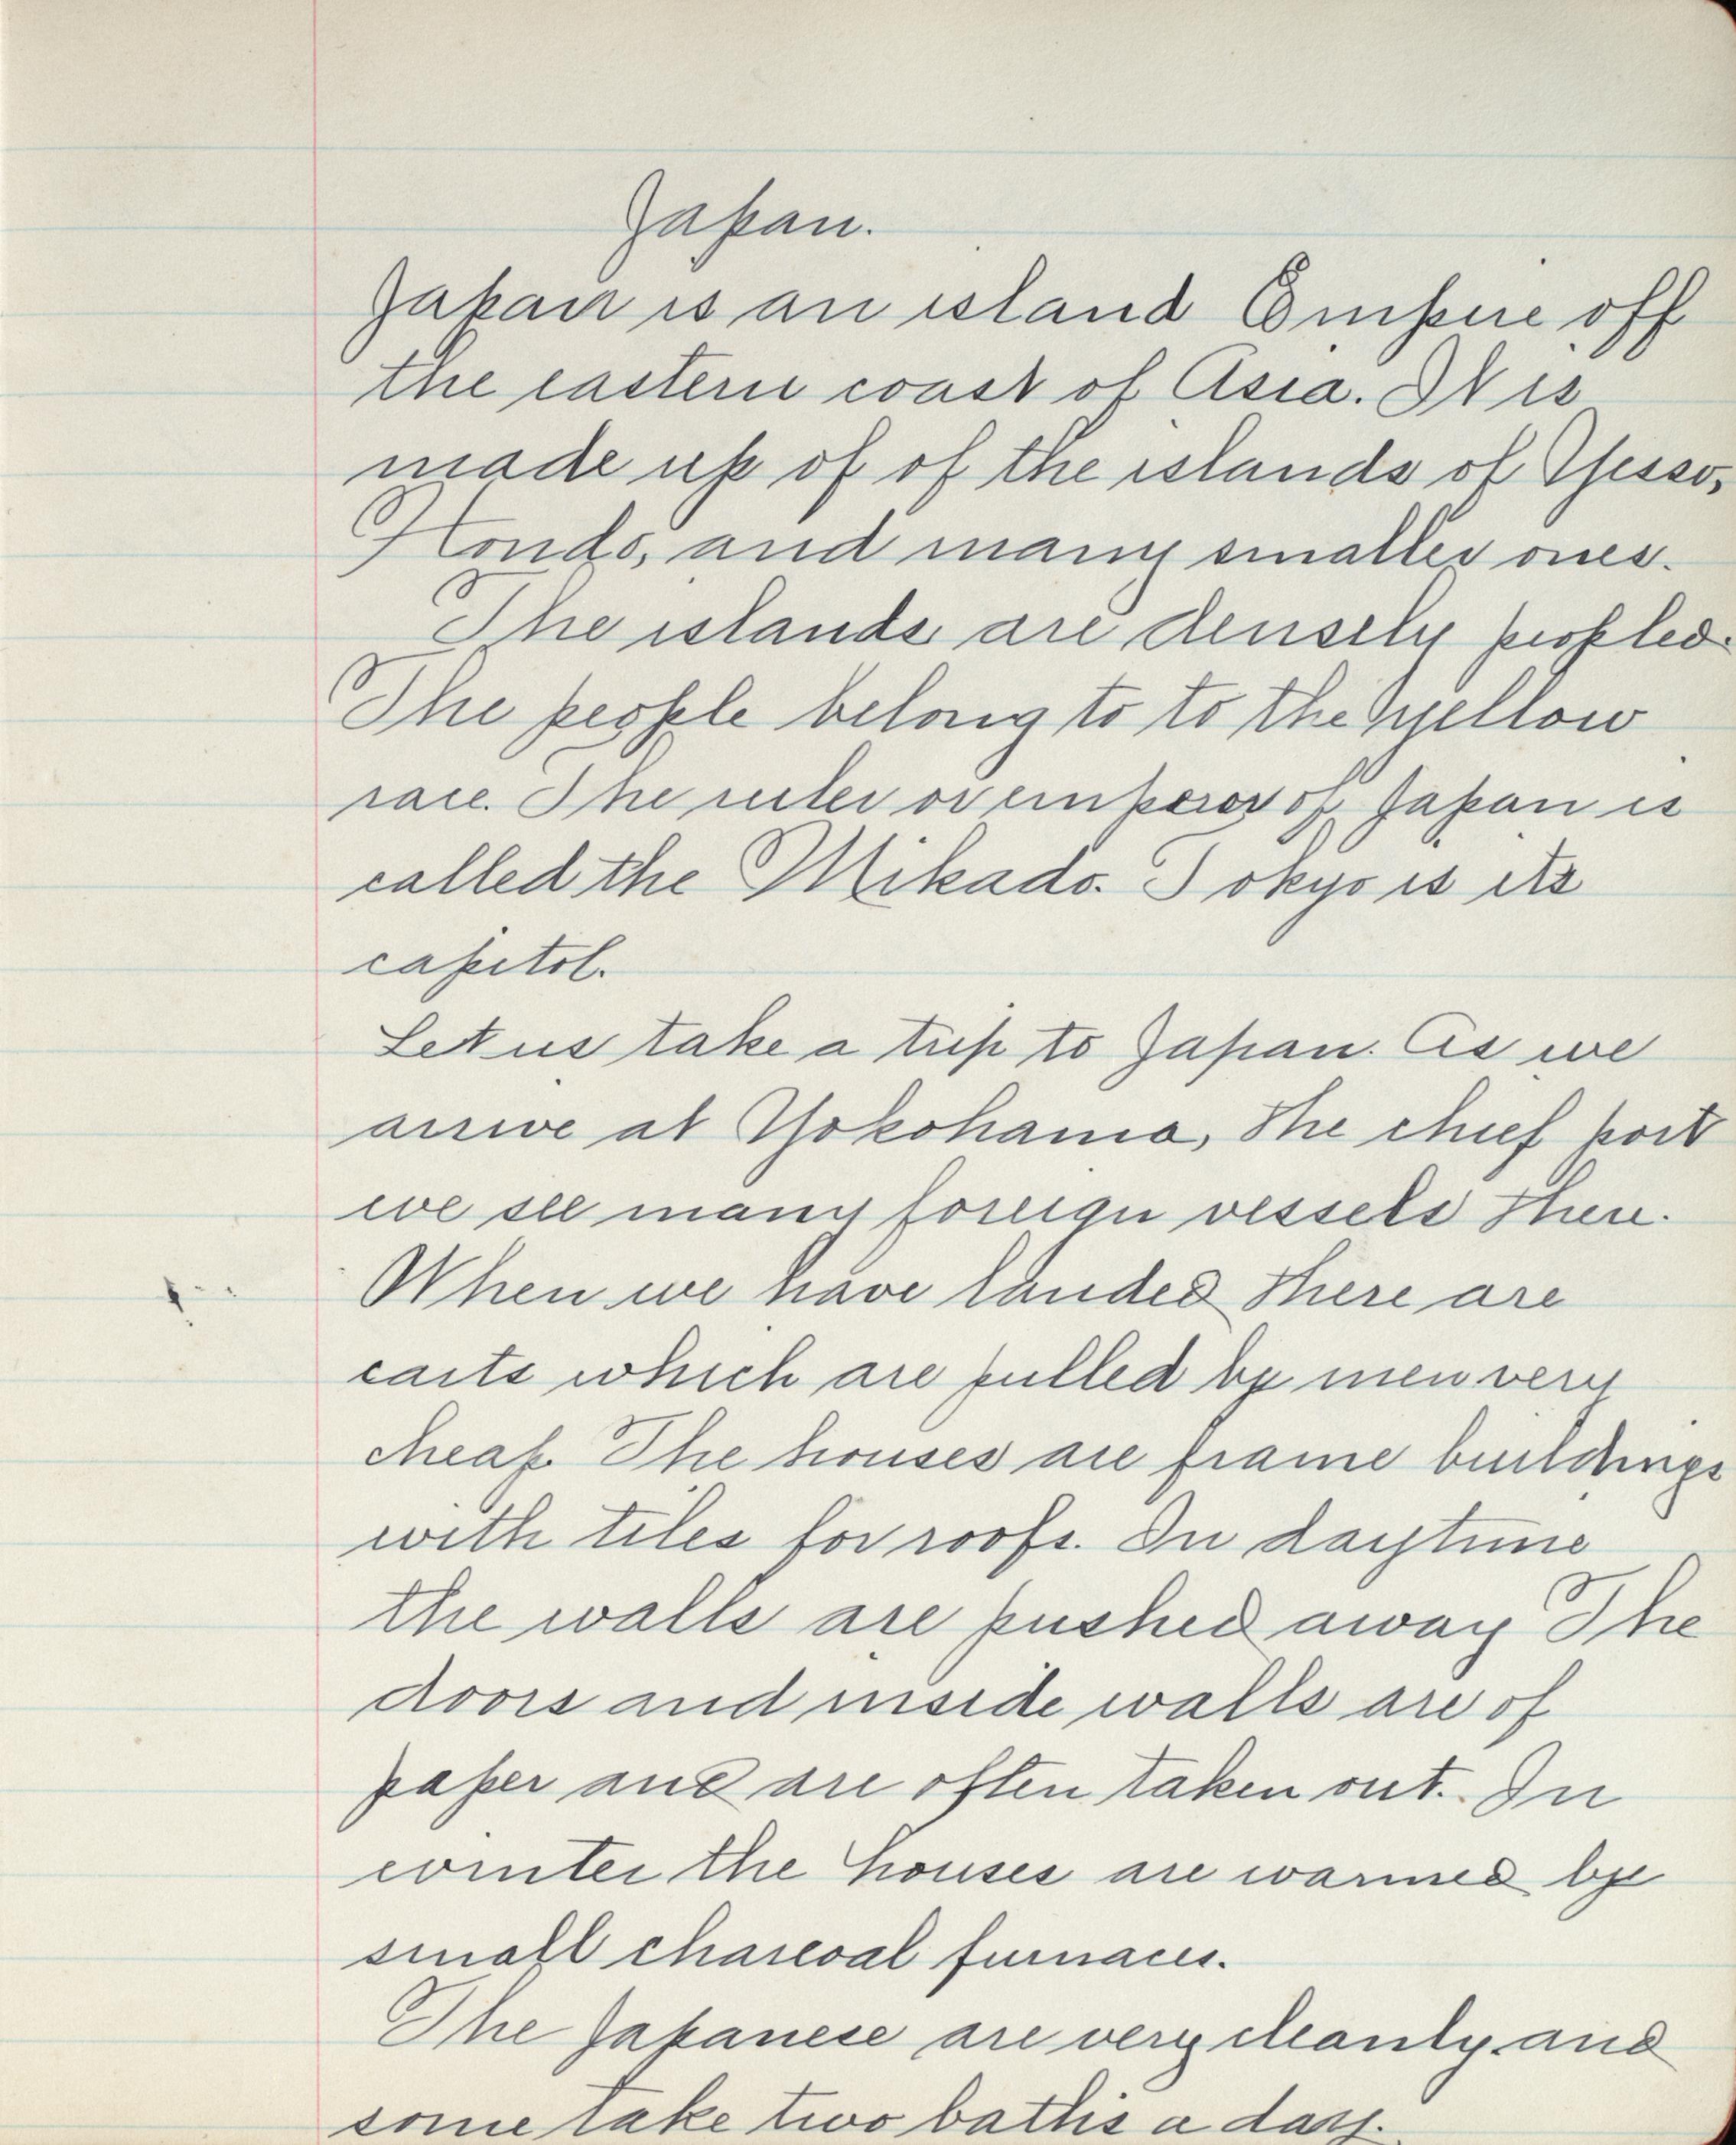 Japan.
Japan is an island Empire off
the eastern coast of Asia. It is
made up of of the islands of Yesso,
Hondo, and many smaller ones.
The islands are densely peopled.
The people belong to to the yellow
race. The ruler or emperor of Japan is
called the Mikado. Tokyo is its
capitol.
Let us take a trip to Japan. As we
arrive at Yokohama, the chief port
we see many foreign vessels there.
When we have landed there are
carts which are pulled by men very
cheap. The houses are frame buildings
with tiles for roofs. In daytime
the walls are pushed away The
doors and inside walls are of
paper and are often taken out. In
winter the houses are warmed by
small charcoal furnaces.
The Japanese are very cleanly and
some take two baths a day.